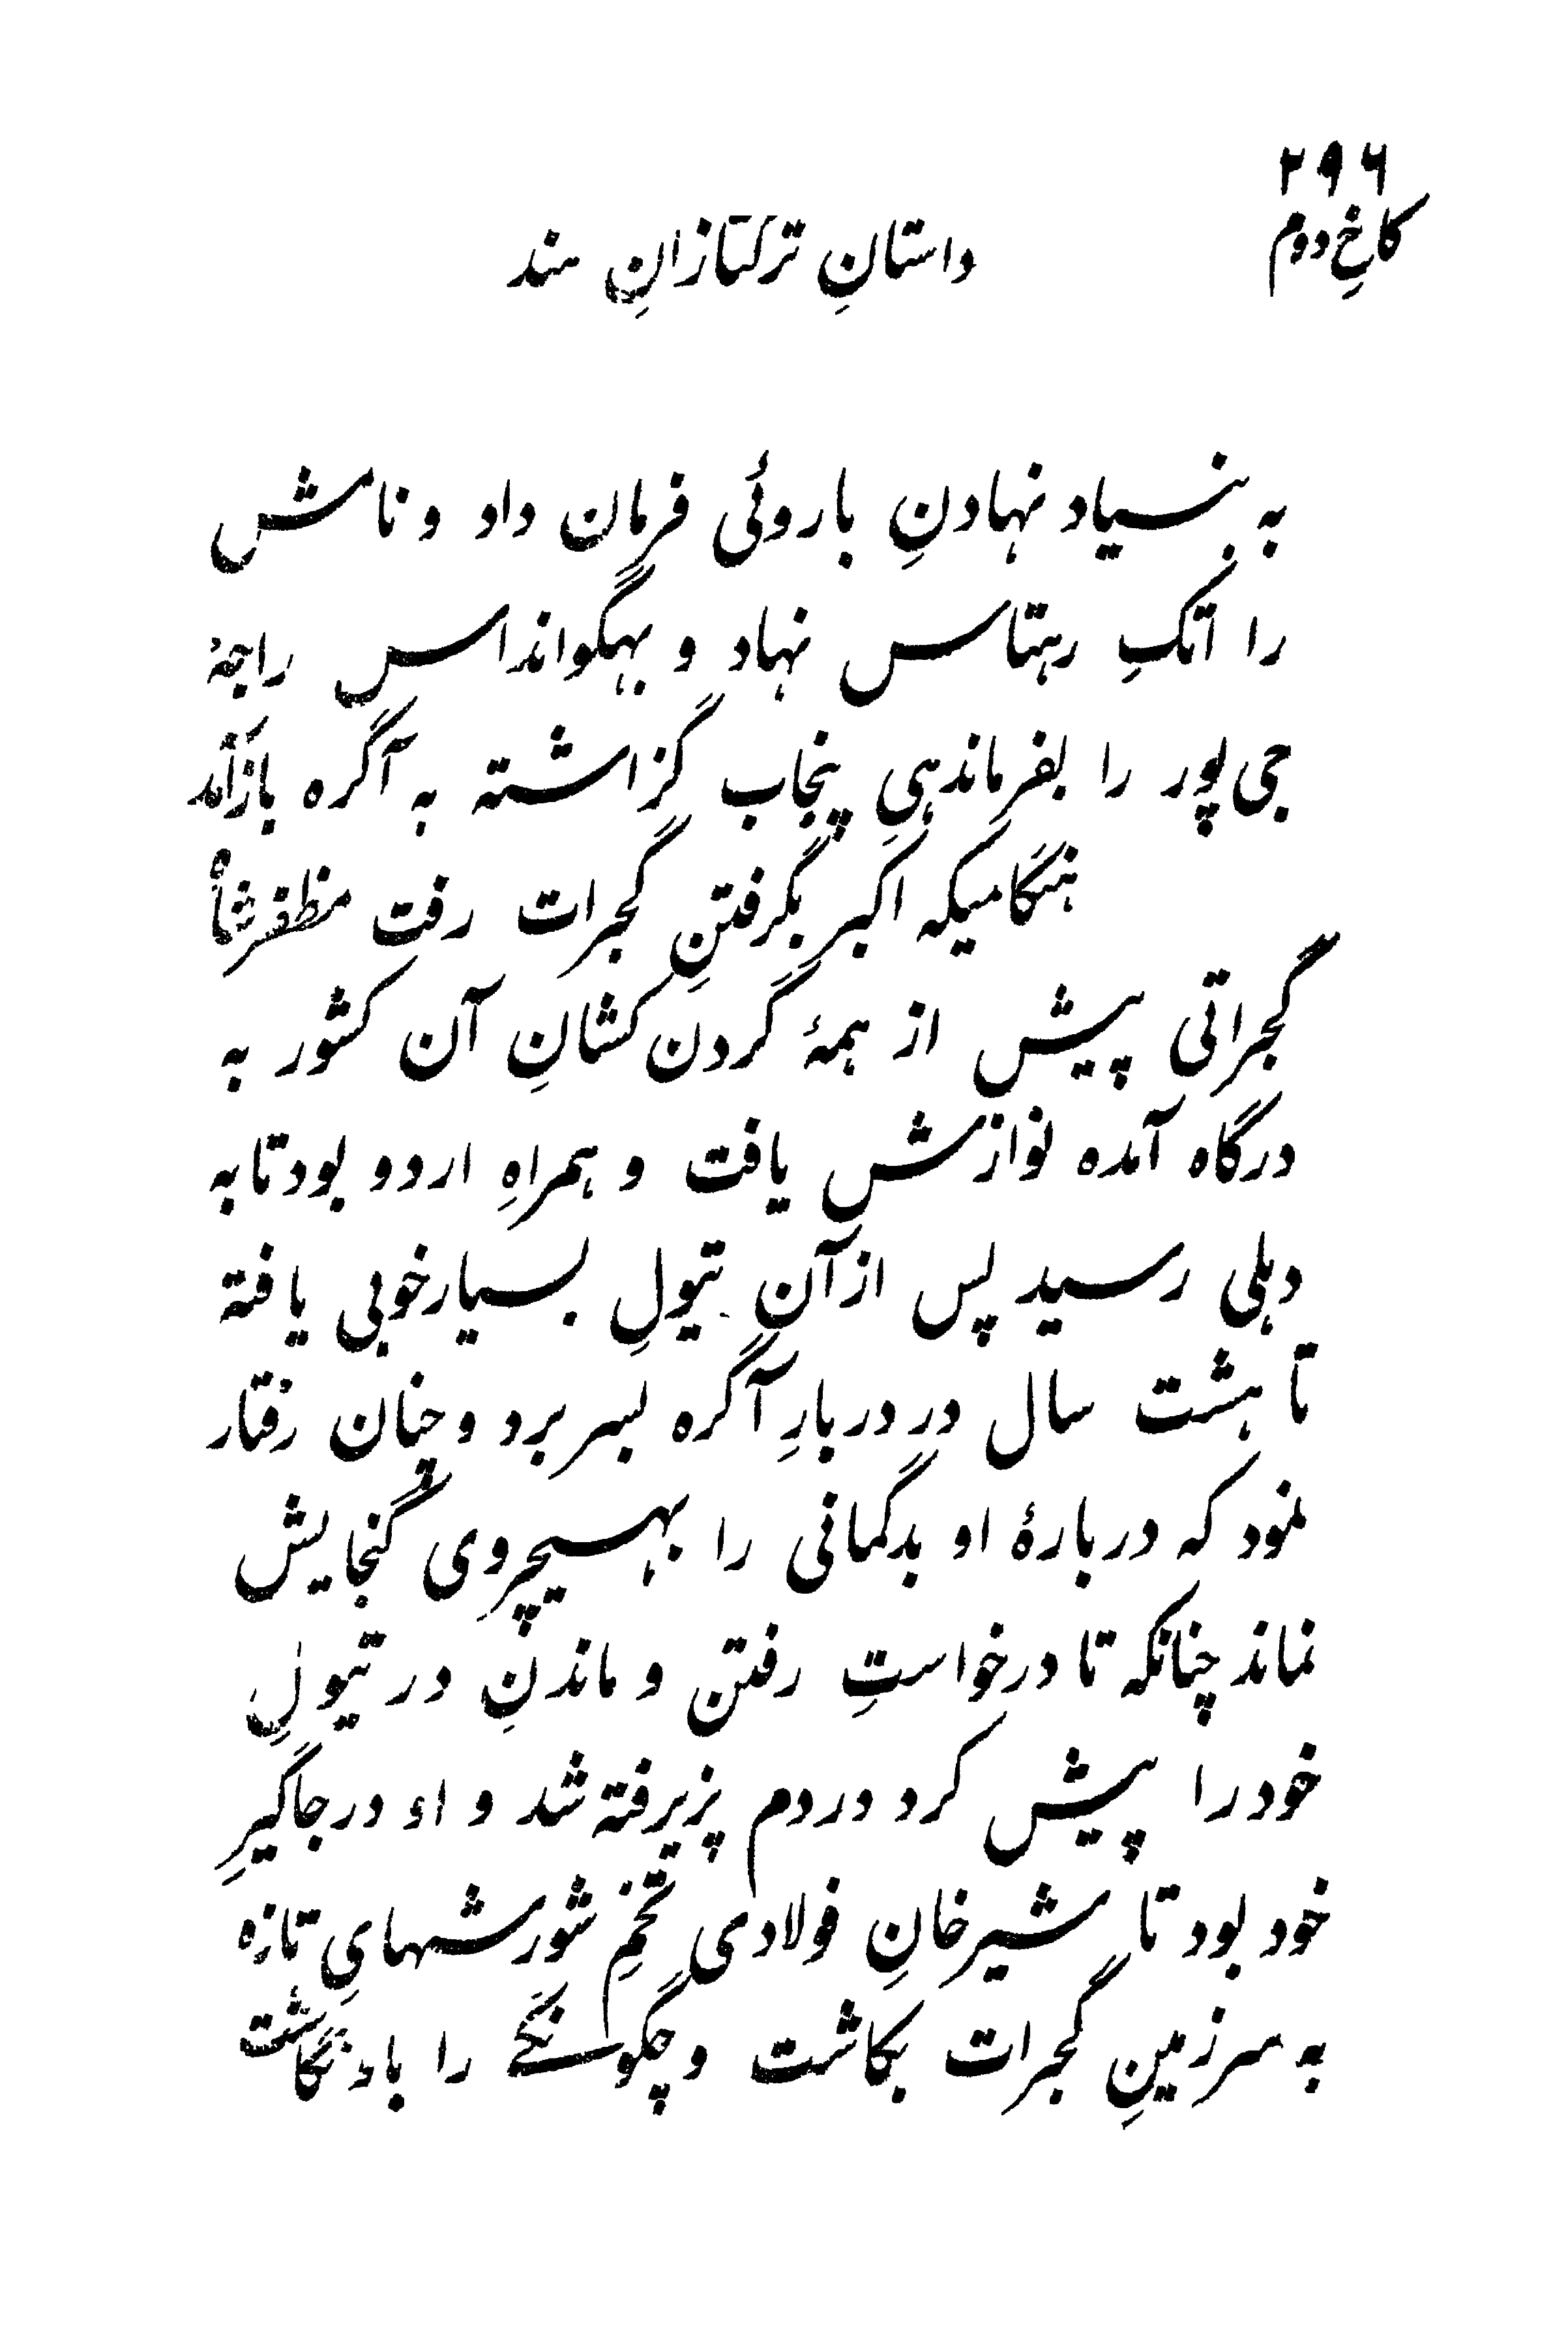 ۲۹۶
کاخِ دوم
داستانِ ترکتازانِ هند
به بنیاد نهادنِ باروئی فرمان داد و نامش
را اتکِ رهتاس نهاد و بهگوانداس راجهٔ
جی پور را بفرماندهیِ پنجاب گزاشته به آگره بازآمد
هنگامیکه اکبر بگرفتنِ گجرات رفت مظفرشاه
گجراتی پیش از همهٔ گردن کشانِ آن کشور به
درگاه آمده نوازش یافت و همراهِ اردو بود تا به
دهلی رسید پس ازآن تیولِ بسیار خوبی یافته
تا هشت سال در دربارِ آگره بسر برد و چنان رفتار
نمود که دربارهٔ او بدگمانی را بهیچروی گنجایش
نماند چنانکه تا درخواستِ رفتن و ماندنِ در تیولِ
خود را پیش کرد دردم پزیرفته شد و اء در جاگیرِ
خود بود تا شیرخانِ فولادی تخمِ شورشهایِ تازه
به سرزمینِ گجرات بکاشت و چگونگے را باء نگاشت